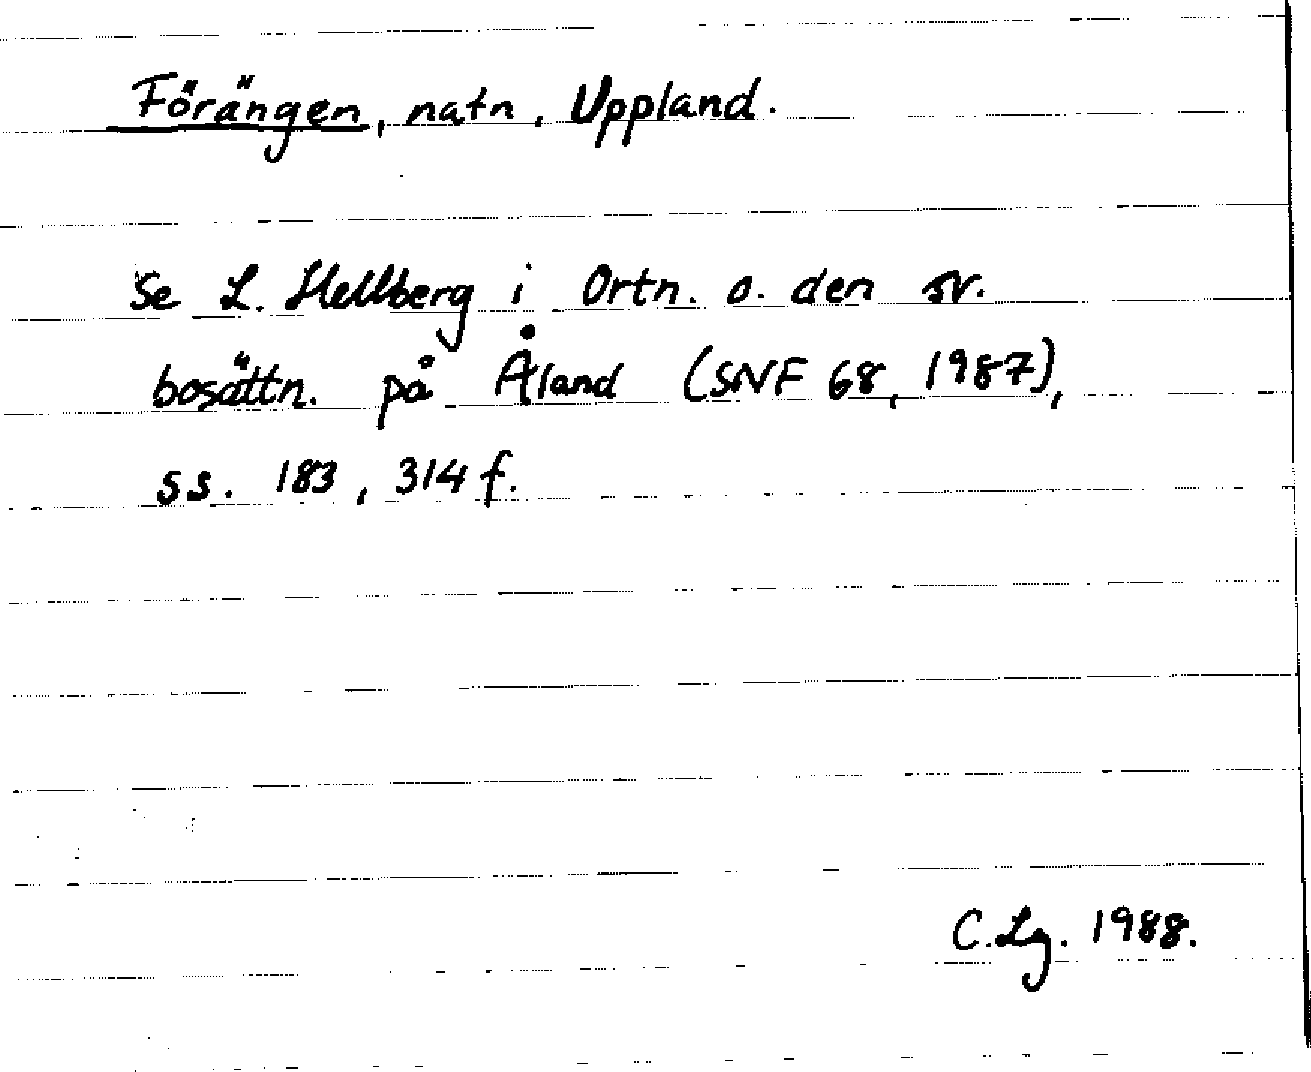 Förängen, natn, Uppland.
Se L. Hellberg i Ortn. o. den sv.
bosättn. på Åland (SNF 68, 1987),
ss. 183, 314 f.
C. Lg. 1988.